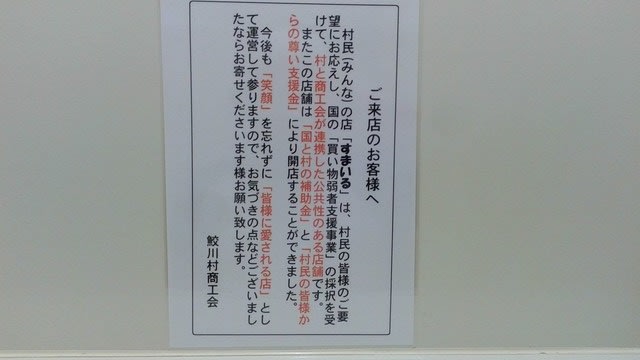 ご来店のお客様へ
村民（みんな）の店「すまいる」は、村民の皆様のご要
望にお応えし、国の「買い物弱者支援事業」の採択を受
けて、村と商工会が連携した公共性のある店舗です。
またこの店舗は「国と村の補助金」と「村民の皆様か
らの尊い支援金」により開店することができました。
今後も「笑顔」を忘れずに「皆様に愛される店」とし
て運営して参りますので、お気づきの点などございまし
たならお寄せくださいます様お願い致します。
鮫川村商工会